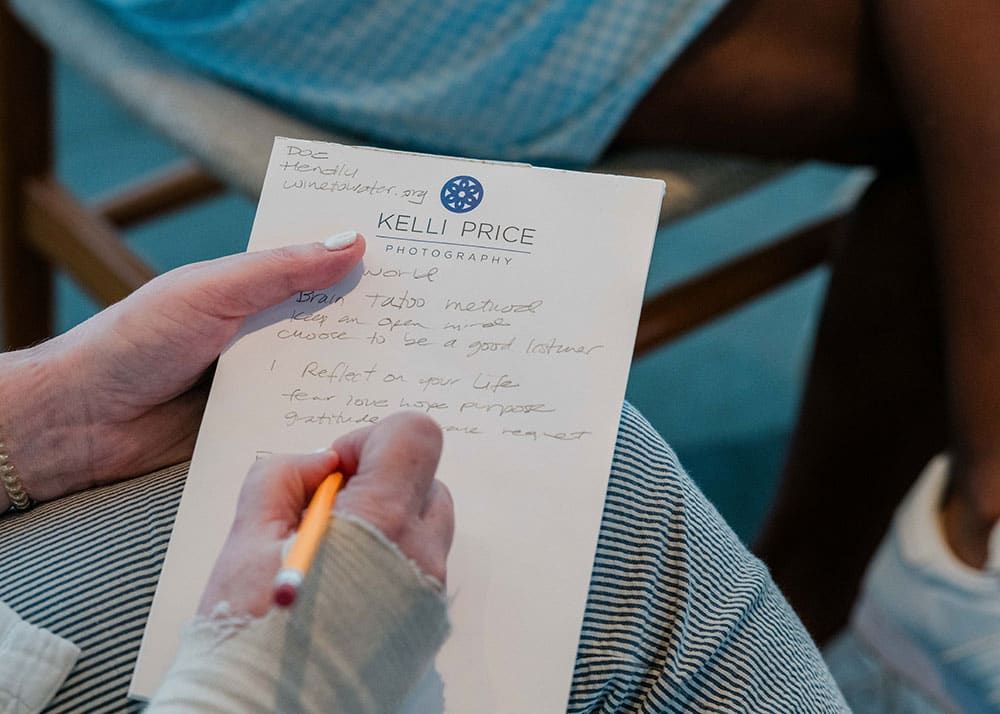 Doc
Hendly
winetowater.org
KELLI PRICE
PHOTOGRAPHY
work
Brain Tatoo method
keep an open mind
choose to be a good listner
1 Reflect on your Life
fear love hope purpose
gratitude request